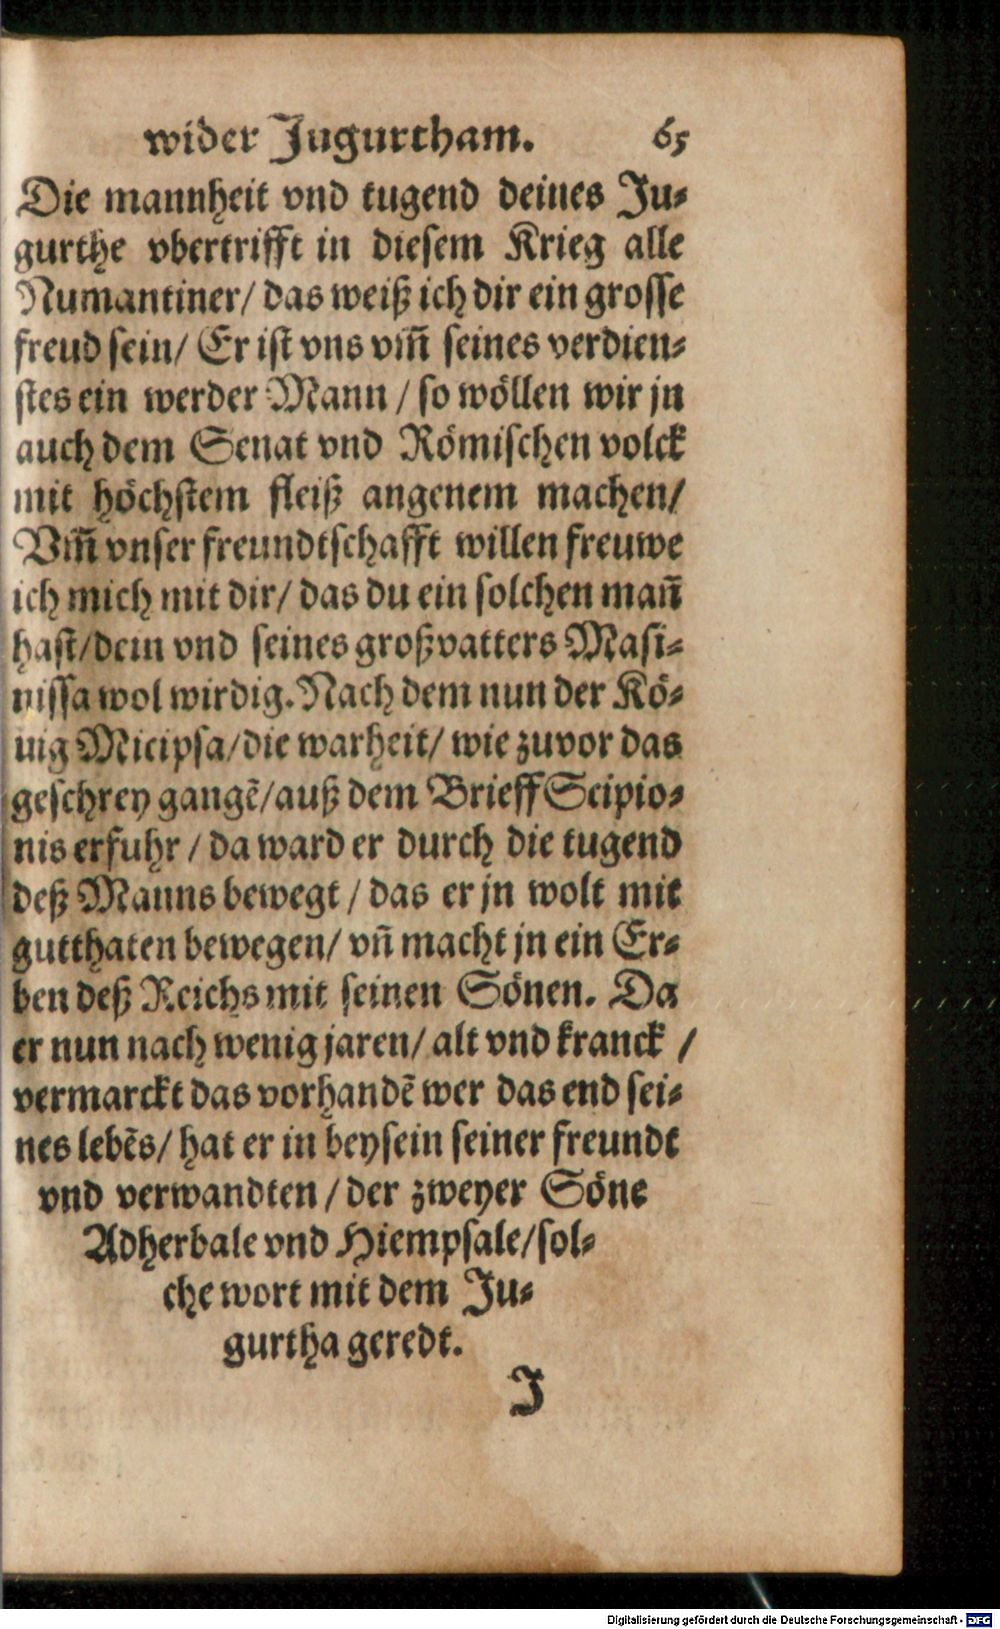 wider Jugurtham. 65
Die mannheit vnd tugend deines Ju⸗
gurthe vbertrifft in diesem Krieg alle
Numantiner/ das weiß ich dir ein grosse
freud sein/ Er ist vns vm̃ seines verdien⸗
stes ein werder Mann / so wöllen wir jn
auch dem Senat vnd Römischen volck
mit höchstem fleiß angenem machen/
Vm̃ vnser freundtschafft willen freuwe
ich mich mit dir/ das du ein solchen mañ
hast/dein vnd seines großvatters Masi⸗
nissa wol wirdig. Nach dem nun der Kö⸗
nig Micipsa/die warheit/ wie zuvor das
geschrey gangẽ/auß dem Brieff Scipio⸗
nis erfuhr / da ward er durch die tugend
deß Manns bewegt / das er jn wolt mit
gutthaten bewegen/ vñ macht jn ein Er⸗
ben deß Reichs mit seinen Sönen. Da
er nun nach wenig jaren/ alt vnd kranck /
vermarckt das vorhandẽ wer das end sei⸗
nes lebẽs/ hat er in beysein seiner freundt
vnd verwandten / der zweyer Söne
Adherbale vnd Hiempsale/sol⸗
che wort mit dem Ju⸗
gurtha geredt.
J
Digitalisierung gefördert durch die Deutsche Forschungsgemeinschaft - DFG